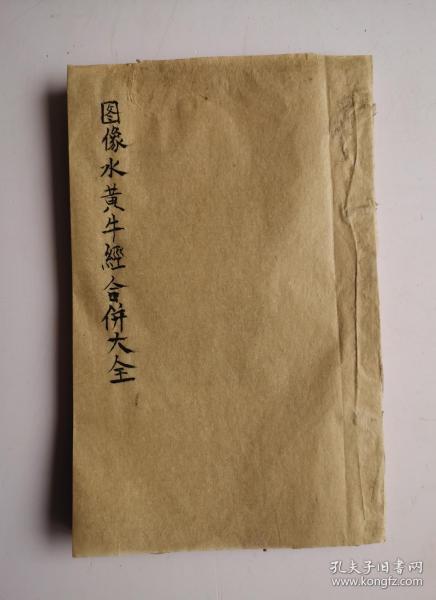 图像水黄牛經合併大全
孔夫子旧书网
www.kongfz.com